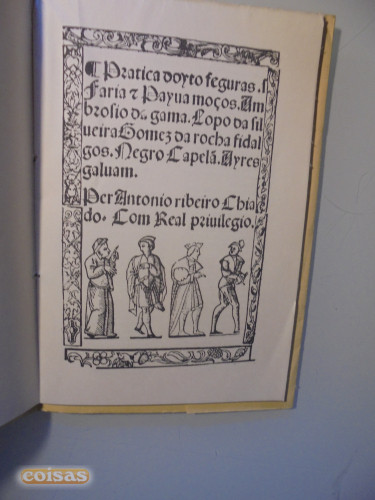 ¶ Pratica doyto feguras .ſ.
Faria ⁊ Payua moços. Am
broſio da gama. Lopo da ſil
ueira Gomez da rocha fidal
gos. Negro Capelã. Ayres
galuam.
Per Antonio ribeiro Chia
do. Com Real priuilegio.
coisas